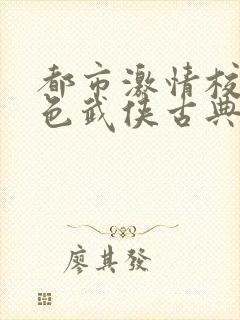 都市激情校
色武侠古典
廖其發